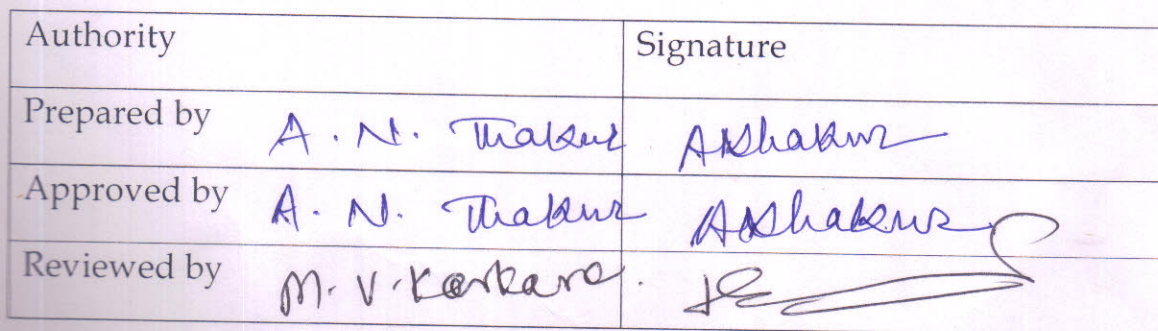 Authority Signature
Prepared by A. N. Thakur AN Thakur
Approved by A. N. Thakur AN Thakur
Reviewed by M. V. Karkare.